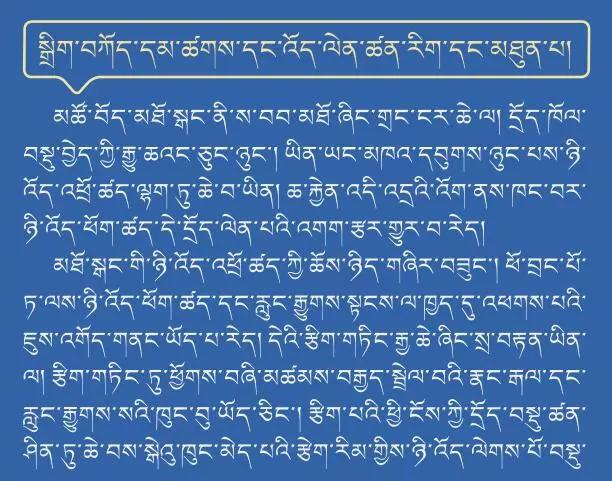 སྒྲིག་བཀོད་དམ་ཚགས་དང་འོད་ལེན་ཚན་རིག་དང་མཐུན་པ།
མཚོ་བོད་མཐོ་སྒང་ནི་ས་བབ་མཐོ་ཞིང་གྲང་ངར་ཆེ་ལ། དྲོད་ཁོལ་
བསྡུ་བྱེད་ཀྱི་རྒྱུ་ཆའང་ཅུང་ཉུང་། ཡིན་ཡང་མཁའ་དབུགས་ཉུང་པས་ཉི་
འོད་འཕྲོ་ཚད་ལྷག་ཏུ་ཆེ་བ་ཡིན། ཆ་རྐྱེན་འདི་འདྲའི་འོག་ནས་ཁང་བར་
ཉི་འོད་ཕོག་ཚད་དེ་དྲོད་ལེན་པའི་འགག་རྩར་གྱུར་བ་རེད།
མཐོ་སྒང་གི་ཉི་འོད་འཕྲོ་ཚད་ཀྱི་ཆོས་ཉིད་གཞིར་བཟུང་། ཕོ་བྲང་པོ་
ཏ་ལས་ཉི་འོད་ཕོག་ཚད་དང་རླུང་རྒྱུགས་སྟངས་ལ་ཁྱད་དུ་འཕགས་པའི་
ཇུས་འགོད་གནང་ཡོད་པ་རེད། དེའི་རྩིག་གཏིང་རྒྱ་ཆེ་ཞིང་སྲ་བརྟན་ཡིན་
ལ། རྩིག་གཏིང་ཏུ་ཕྱོགས་བཞི་མཚམས་བརྒྱད་སྦྲེལ་བའི་རྣང་རྒལ་དང་
རླུང་རྒྱུགས་སའི་ཁུང་བུ་ཡོད་ཅིང་། རྩིག་པའི་ཕྱི་ངོས་ཀྱི་དྲོད་བསྡུ་ཚན་
ཤིན་ཏུ་ཆེ་བས་སྒེའུ་ཁུང་མེད་པའི་རྩེག་རིམ་གྱིས་ཉི་འོད་ལེགས་པོ་བསྡུ་